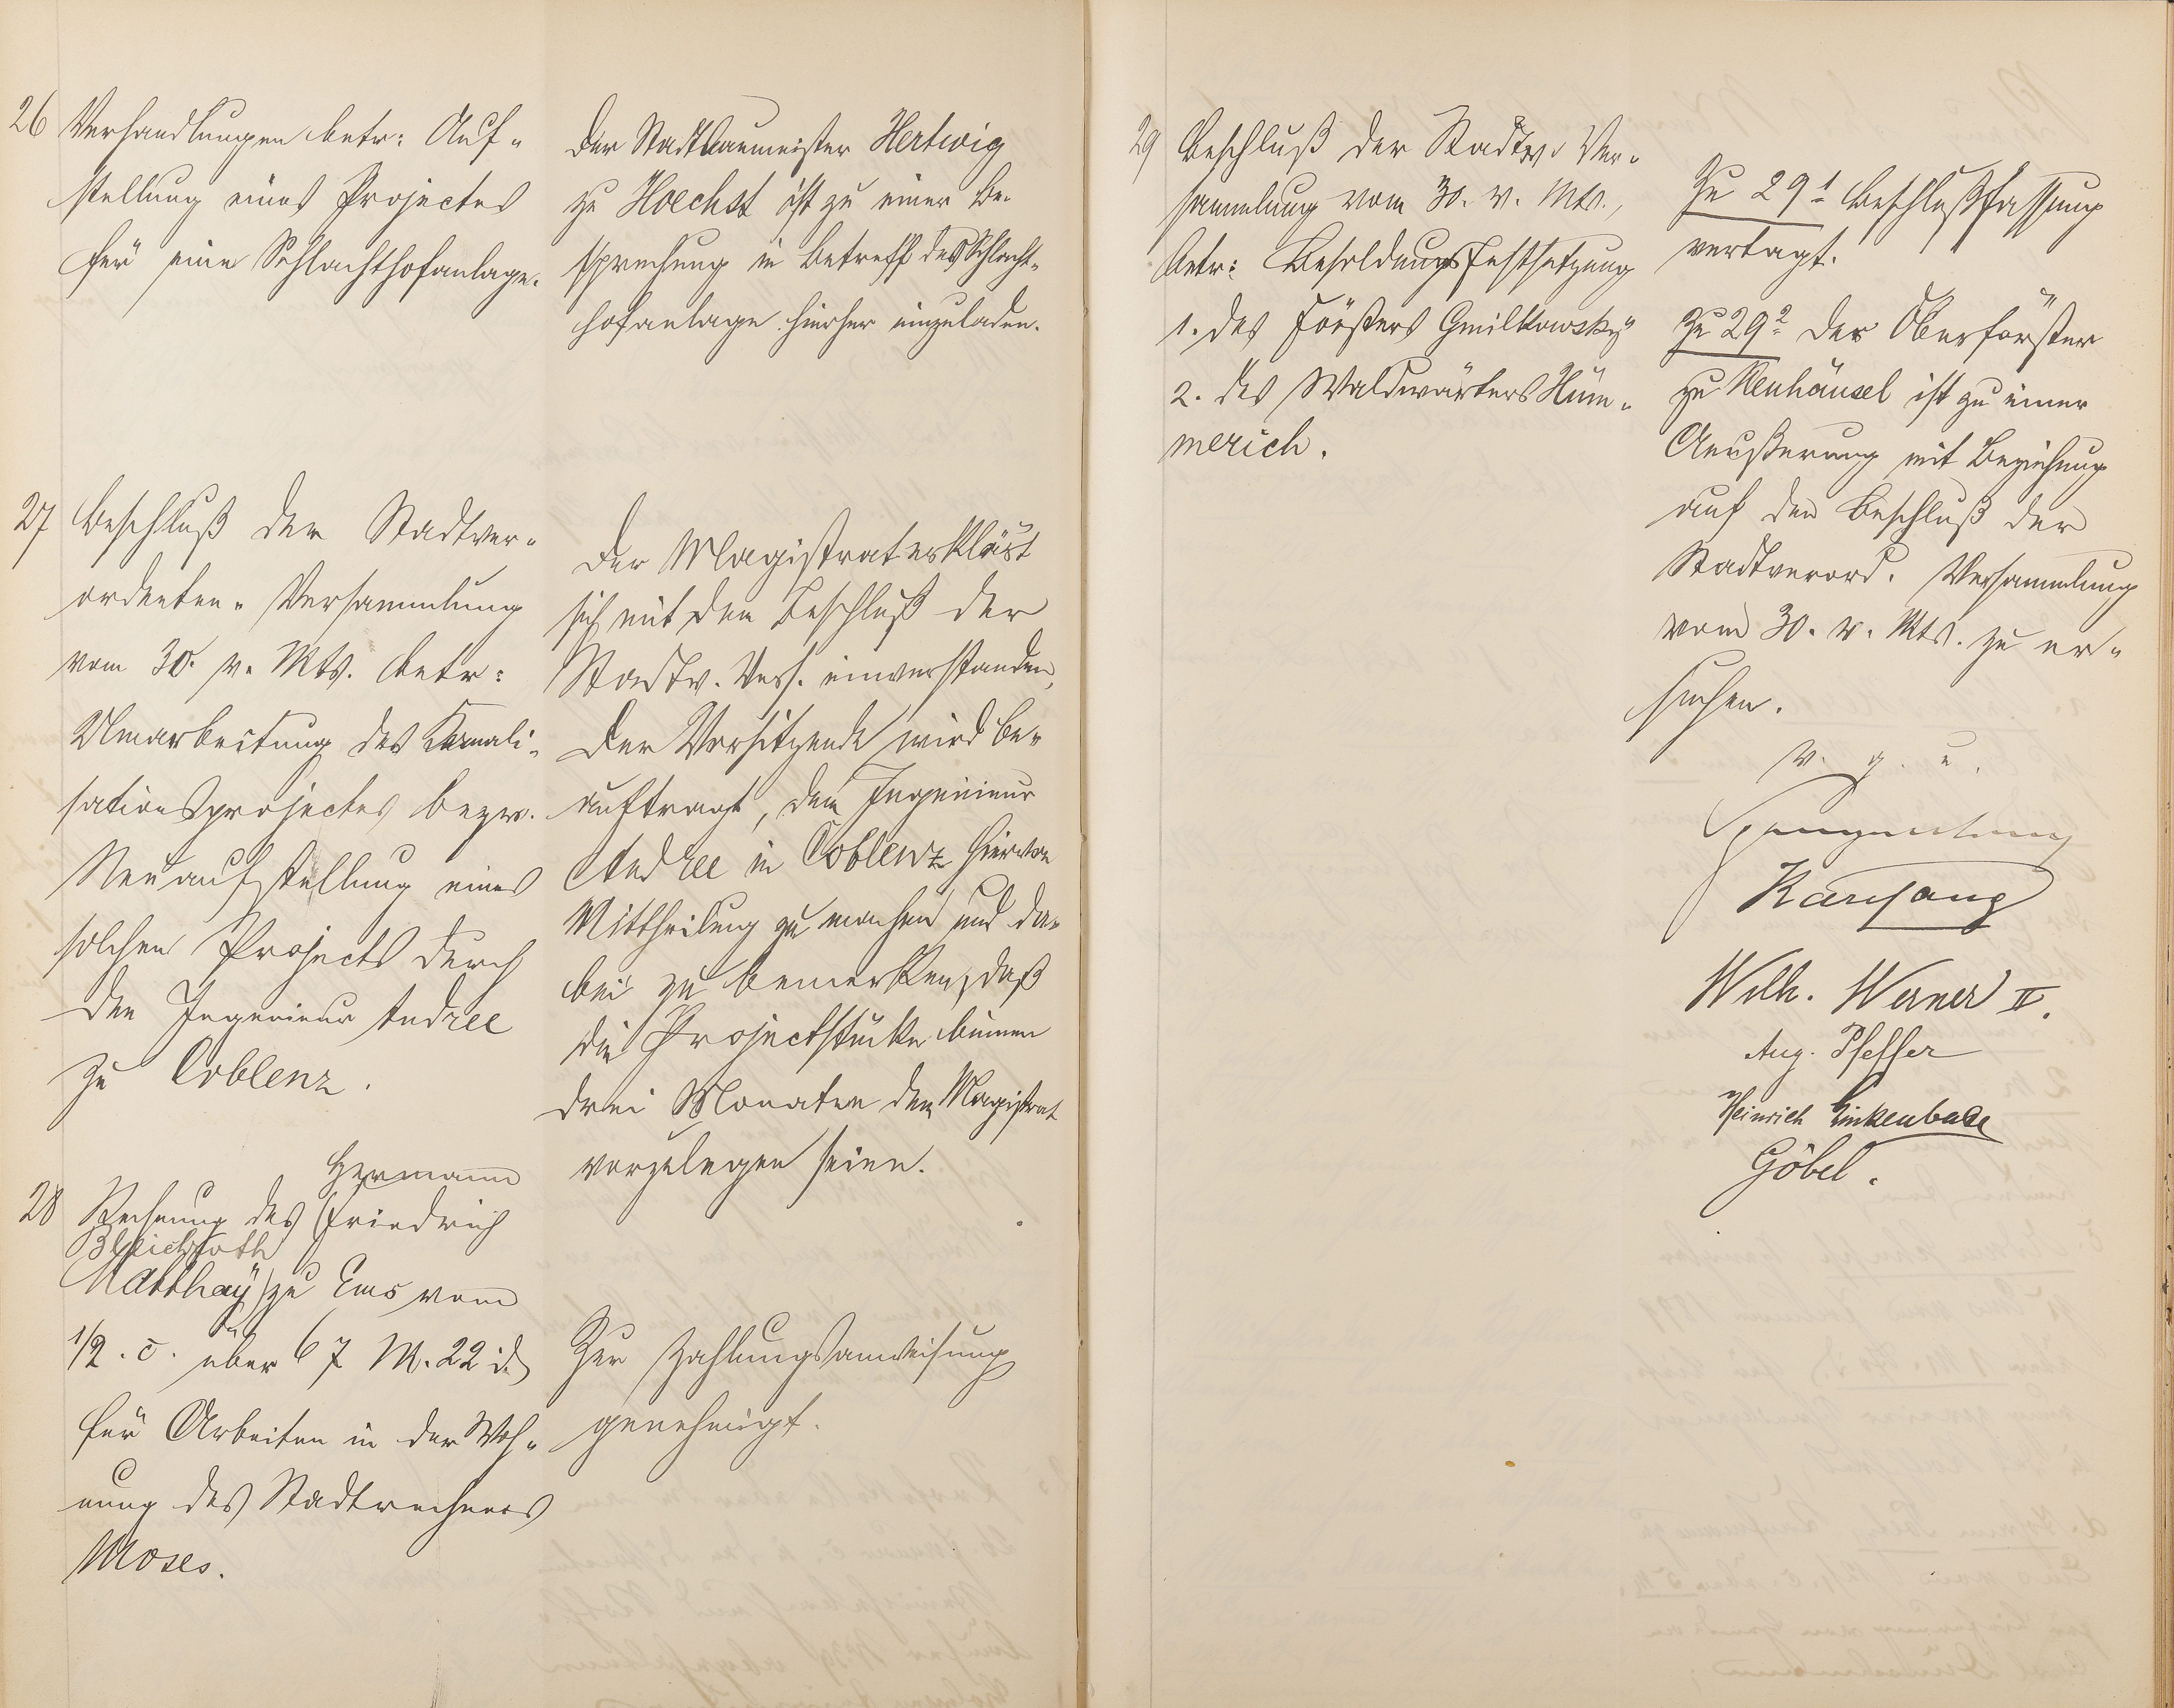 26 Verhandlungen betr: Auf-
stellung eines Projectes
für eine Schlachthofanlage.
Der Stadtbaumeister Hertwig
zu Hoechst ist zu einer Be-
sprechung in Betreff des Schlacht-
hofanlage hierher einzuladen.
27 Beschluß der Stadtver-
ordneten-Versammlung
vom 30. v. Mts. betr:
Umarbeitung des Kanali-
sationsprojectes bezw.
Neuaufstellung eines
solchen Projects durch
den Ingenieur Andree
zu Coblenz.
Der Magistrat erklärt
sich mit dem Beschluß der
Stadtv. Vers. einverstanden,
Der Vorsitzende wird be-
auftragt, dem Ingenieur
Andree in Coblenz hiervon
Mittheilung zu machen und da-
bei zu bemerken, daß
die Projectstücke binnen
drei Monaten dem Magistrat
vorzulegen seien.
Hermann
28 Rechnung des (Friedrich
Bleichroth
Matthay) zu Ems vom
1/2. c. über 67 M. 22 d.
für Arbeiten in der Woh-
nung des Stadtrechners
Moses.
Zur Zahlungsanweisung
genehmigt.
29 Beschluß der Stadtv. Ver-
sammlung vom 30. v. Mts.,
betr: Besoldungsfestsetzung
1. des Försters Gmilkowsky
2. des Waldwärters Hüm-
merich.
Zu 29 1 Beschlußfassung
vertagt.
Zu 29 2 Der Oberförster
zu Neuhäusel ist zu einer
Aeußerung mit Beziehung
auf den Beschluß der
Stadtverord. Versammlung
vom 30. v. Mts. zu er-
suchen.
v. g. u.
Wilh. Werner II.
Aug. Pfeffer
Heinrich Linkenbach
Göbel.